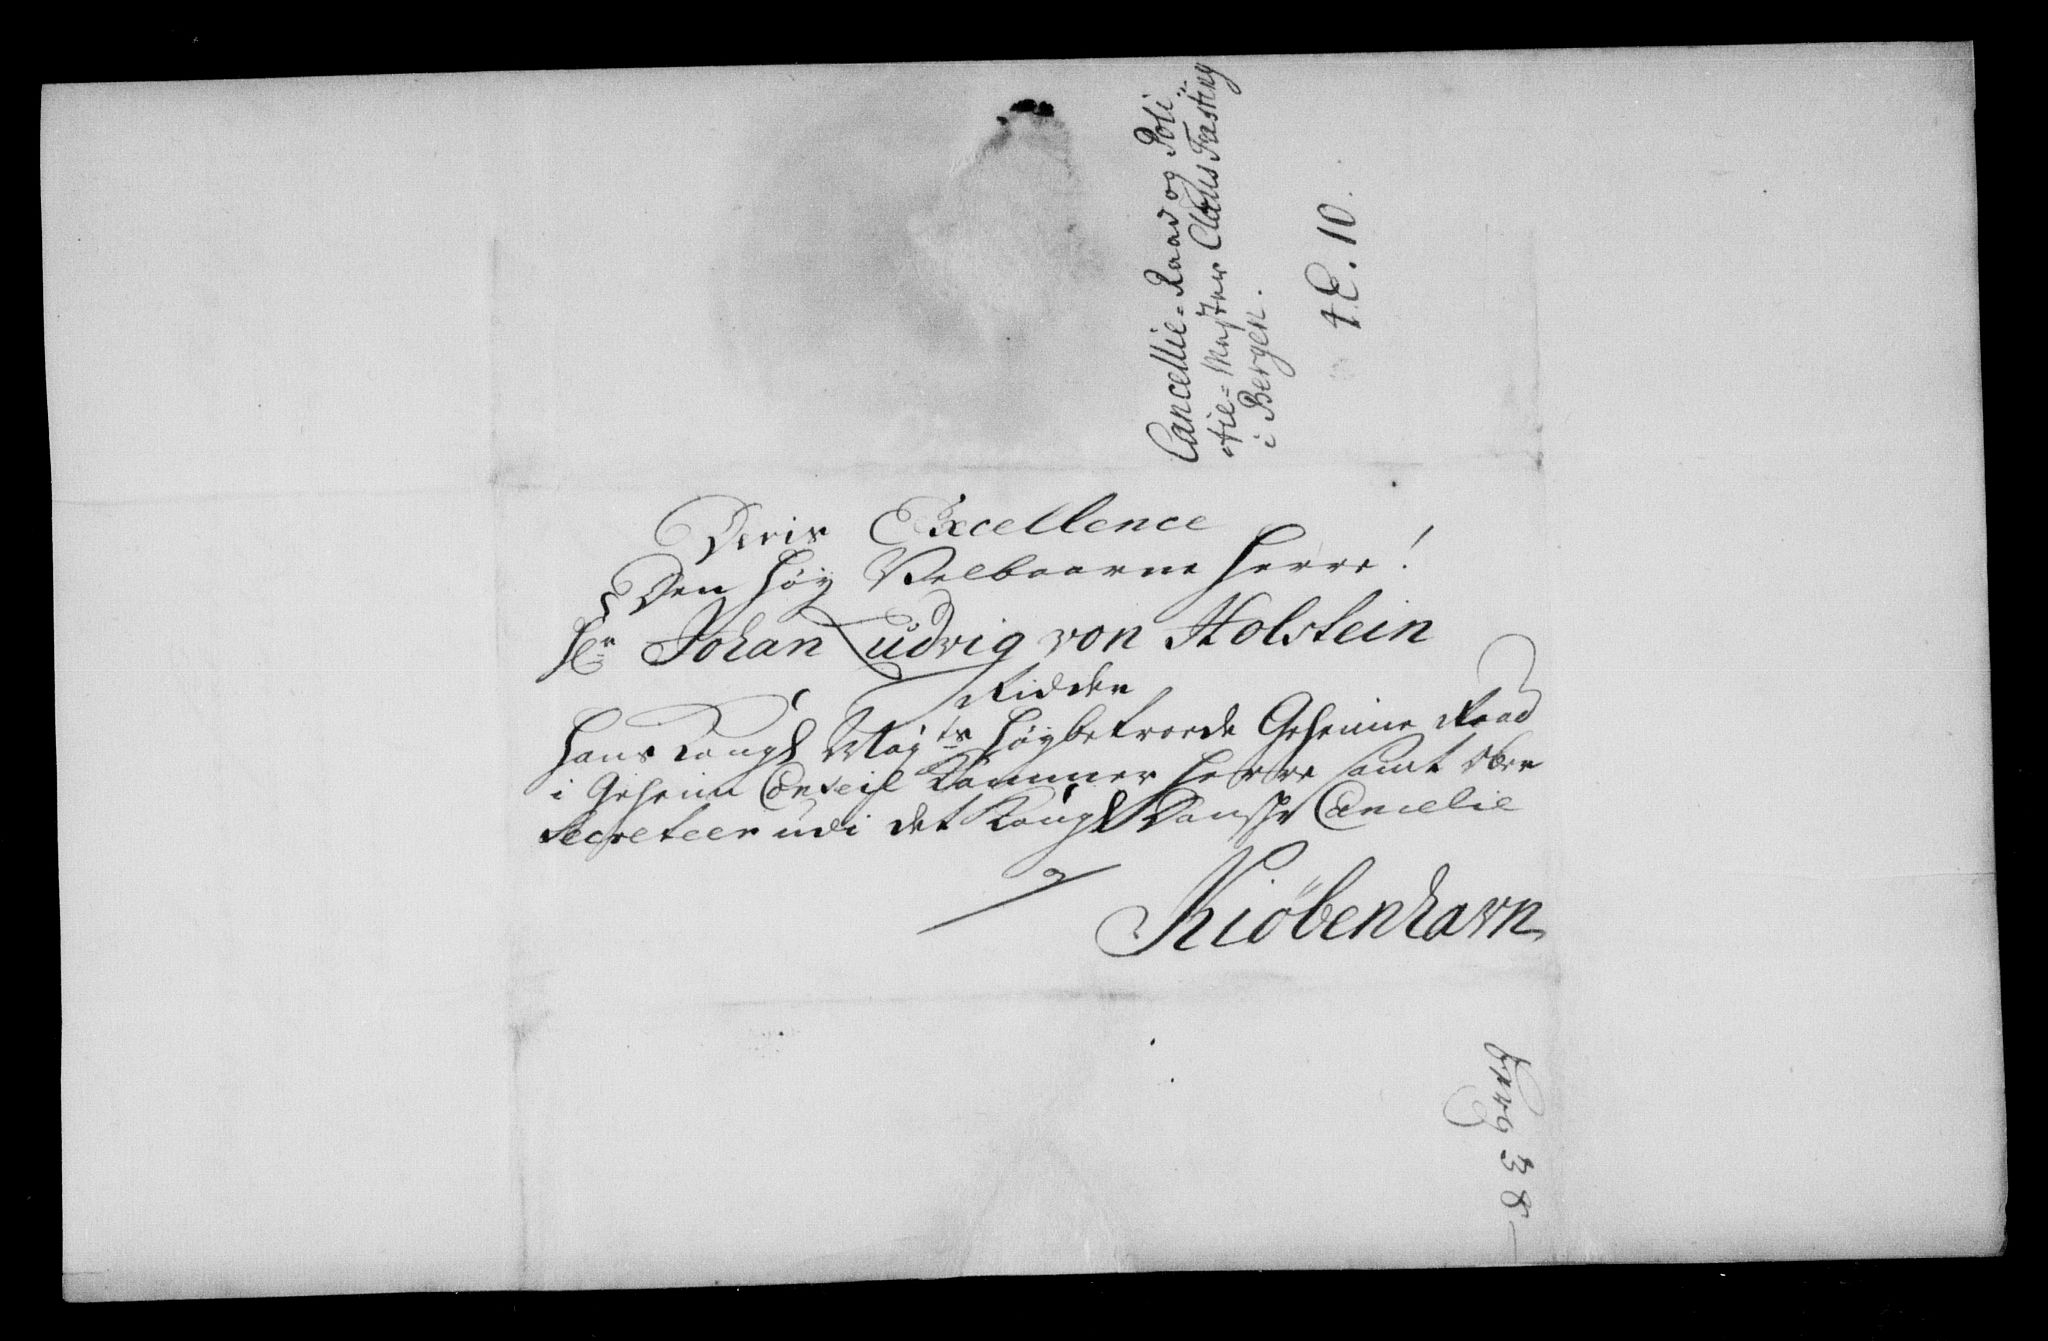 Cancellie-Raad og Poli-
otie-Mester Claus Fasting
i Bergen.
t.E.10.
Deris Excellence
Den Høy Velbaarne Herre!
Hr Johan Ludvig von Holstein
Ridder
Hans Kongl Mayts Høybetroede Geheime Raad
i Geheim Conseil Kammer Herre samt Ober
Secreteer udi det Kongl Danske Cancelie
Kiöbenhavn
38